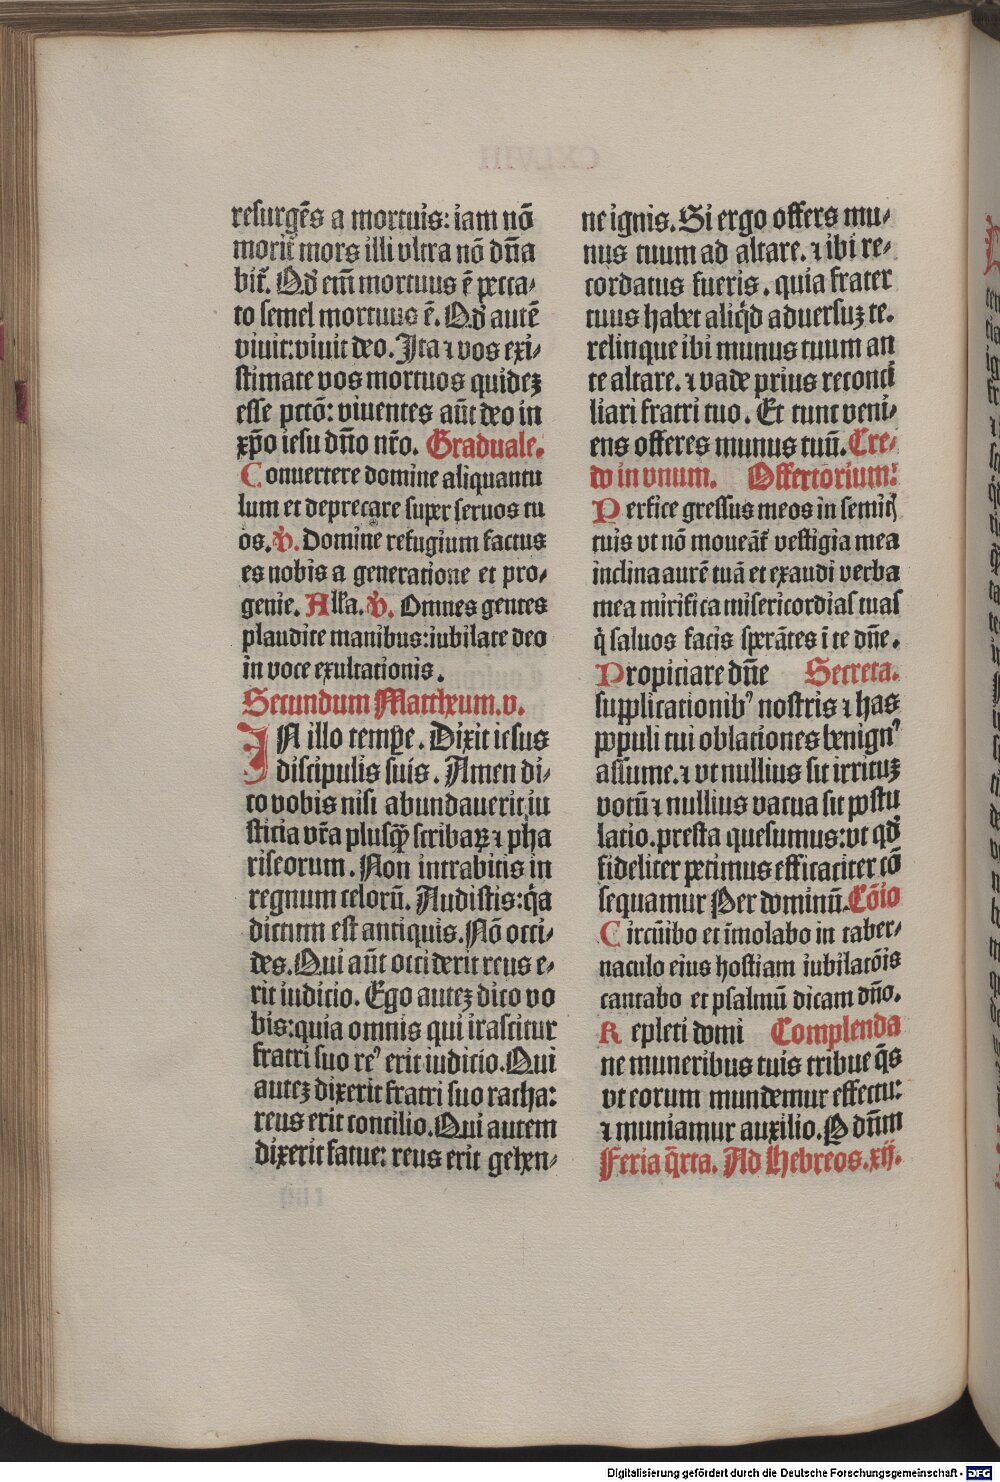 resurgēs a mortuis: iam nō
morit᷑ mors illi vltra nō dn̄a
bit᷑. Qd̛ em̄ mortuus ē pecca-
to semel mortuus ē. Qd̛ autē
viuit: viuit deo. Ita ⁊ vos exi-
stimate vos mortuos quidez
esse pctō: viuentes aūt deo in
xp̄o iesu dn̄o nr̄o. Graduale.
Conuertere domine aliquantu
lum et deprecare super seruos tu
os. ℣. Domine refugium factus
es nobis a generatione et pro-
genie. Alla. ℣. Omnes gentes
plaudite manibus: iubilate deo
in voce exultationis.
Secundum Mattheum. v.
IN illo temꝑe. Dixit iesus
discipulis suis. Amen di-
co vobis nisi abundauerit iu
sticia vr̄a plusqꝫ scribaꝝ ⁊ pha
riseorum. Non intrabitis in
regnum celorū. Audistis: q̄a
dictum est antiquis. Nō occi-
des. Qui aūt occiderit reus e-
rit iudicio. Ego autez dico vo
bis: quia omnis qui irascitur
fratri suo reꝰ erit iudicio. Qui
autez dixerit fratri suo racha:
reus erit concilio. Qui autem
dixerit fatue: reus erit gehen-
ne ignis. Si ergo offers mu-
nus tuum ad altare. ⁊ ibi re-
cordatus fueris. quia frater
tuus habet aliq̇d aduersuz te.
relinque ibi munus tuum an
te altare. ⁊ vade prius reconci
liari fratri tuo. Et tunc veni-
ens offeres munus tuū. Cre-
do in vnum. Offertorium:
Perfice gressus meos in semit̛
tuis vt nō moueāt᷑ vestigia mea
inclina aurē tuā et exaudi verba
mea mirifica misericordias tuas
q̇ saluos facis sperātes ī te dn̄e.
Propiciare dn̄e Secreta.
supplicationibꝰ nostris ⁊ has
populi tui oblationes benignꝰ
assume. ⁊ vt nullius sit irrituz
votū ⁊ nullius vacua sit postu
latio. presta quesumus: vt qd̛
fideliter petimus efficaciter cō
sequamur Per dominū. Cōio
Circūibo et īmolabo in taber-
naculo eius hostiam iubilatōis
cantabo et psalmū dicam dn̄o.
Repleti domi Complenda
ne muneribus tuis tribue q̄s
vt eorum mundemur effectu:
⁊ muniamur auxilio. P dn̄m
Feria q̄rta. Ad Hebreos. xij.
Digitalisierung gefördert durch die Deutsche Forschungsgemeinschaft - DFG